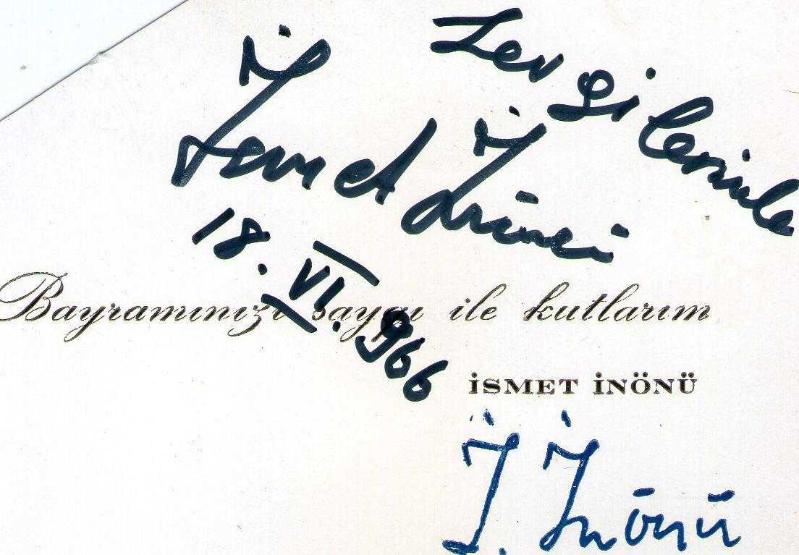 Sevgilerimle
İsmet İnönü
18.VI.966
Bayramınızı saygı ile kutlarım
İSMET İNÖNÜ
İ. İnönü